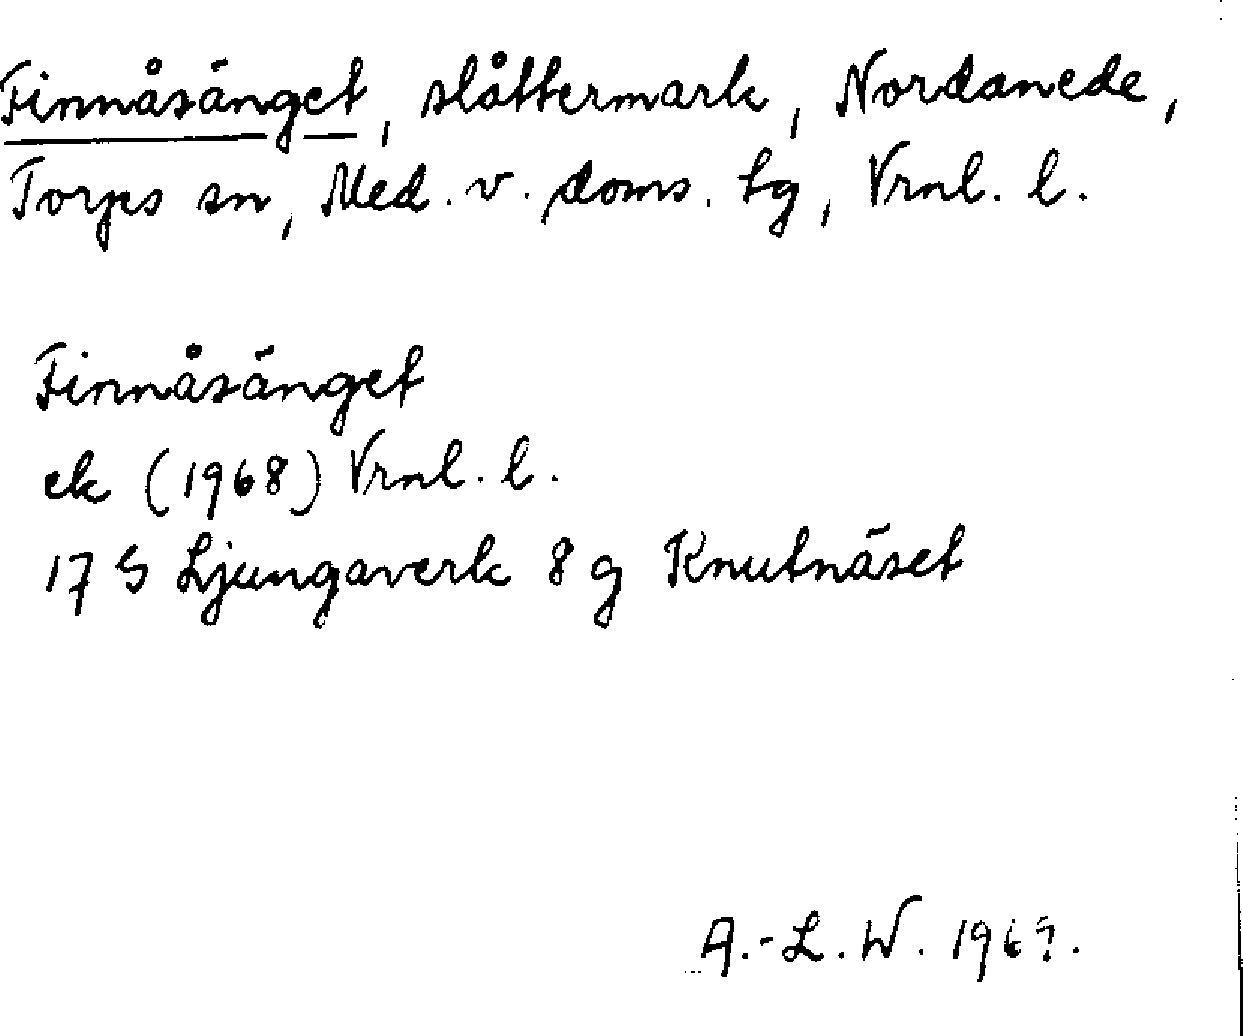 Finnåsänget, slåttermark, Nordanede,
Torps sn, Med. v. doms. tg, Vrnl. l.
Finnåsänget
ek (1968) Vrnl. l.
17 G Ljungaverk 8 g Knutnäset
A.-L. W. 1969.